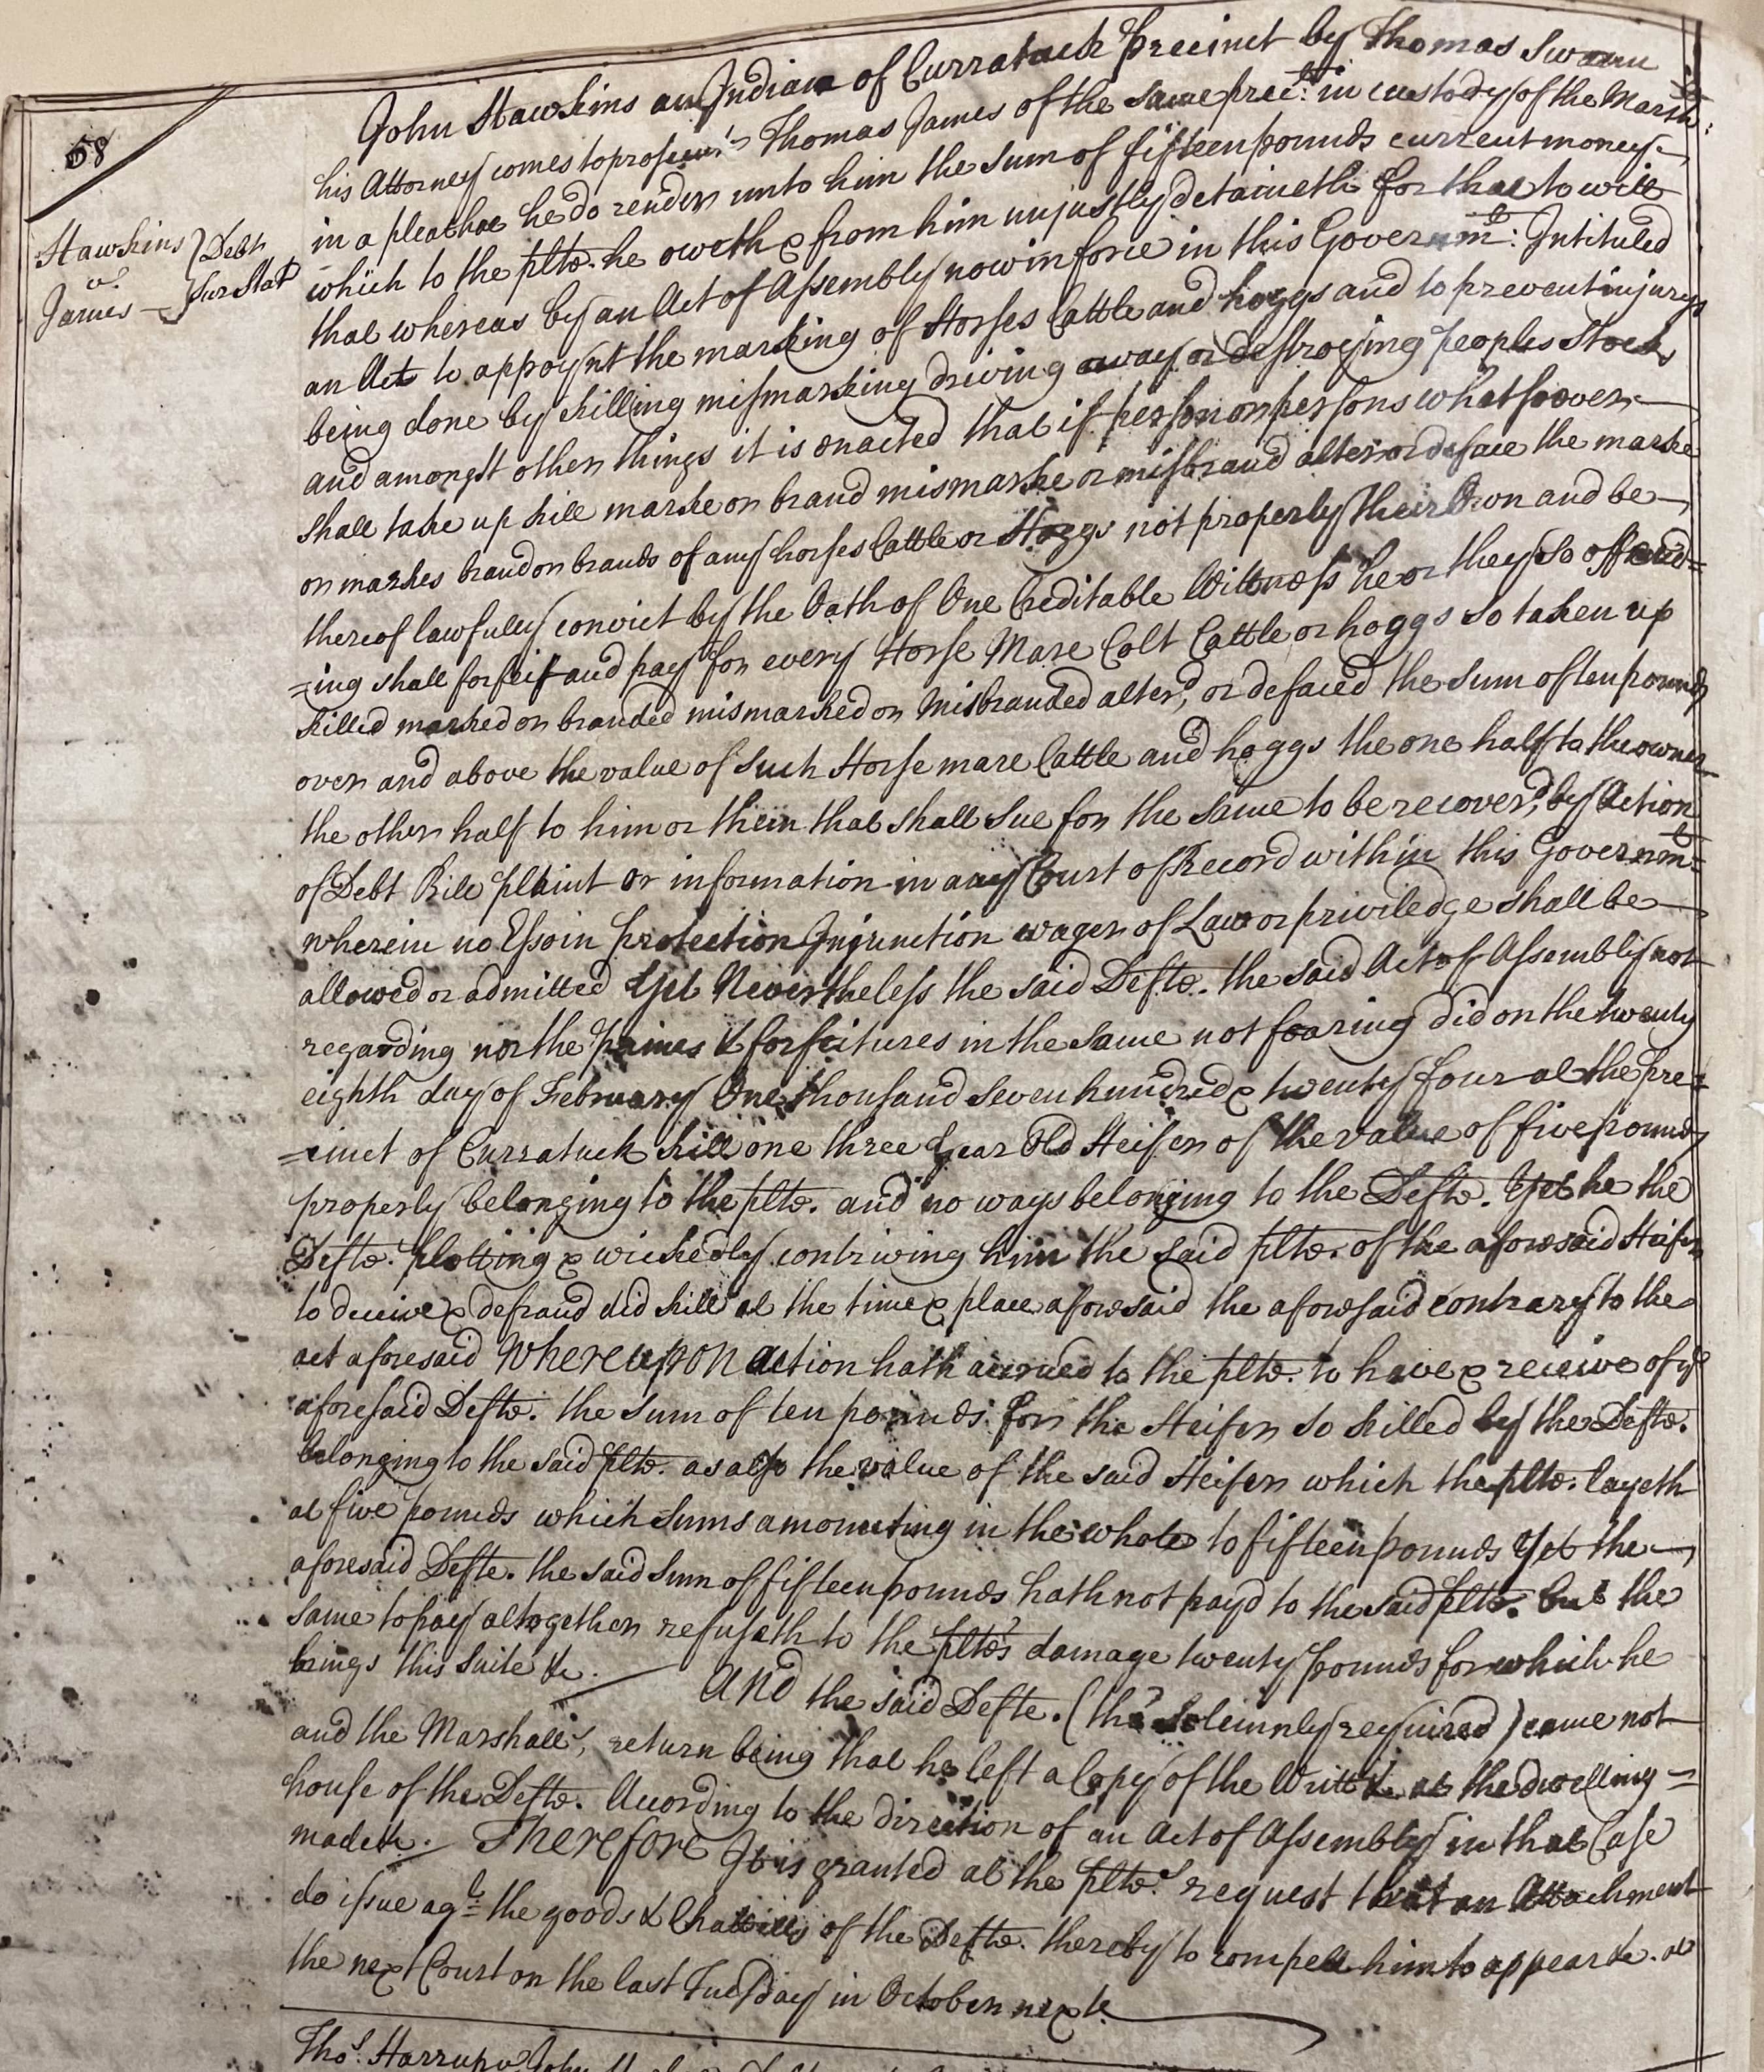 58
Hawkins } Debt
vs.
James — } Sur Stat
John Hawkins an Indian of Curratuck Precinct by Thomas Swann
his Attorney comes to prosecute Thomas James of the same prect: in custody of the Marsh:
in a plea that he do render unto him the sum of fifteen pounds current money
which to the plte. he oweth & from him unjustly detaineth for that to witt
that whereas by an Act of Assembly now in force in this Governmt: Intituled
an Act to appoynt the marking of Horses Cattle and hoggs and to prevent injurys
being done by killing mismarking driving away or destroying peoples Stocks
and amongst other things it is enacted that if person or persons whatsoever
shall take up kill marke or brand mismarke or misbrand alter or deface the marke
or markes brand or brands of any horses Cattle or Hoggs not properly their Own and be
thereof lawfully convict by the Oath of One Creditable Wittness he or they so offend=
=ing shall forfeit and pay for every Horse Mare Colt Cattle or hoggs so taken up
killed marked or branded mismarked or Misbranded alter'd, or defaced the sum of ten pounds
over and above the value of such Horse mare Cattle and hoggs the one half to the owner
the other half to him or them that shall sue for the same to be recover'd, by Action
of Debt Bill plaint or information in any Court of Record within this Governmt=
wherein no Essoin protection Injunction wager of Law or priviledge shall be
allowed or admitted Yet Nevertheless the said Defte. the said Act of Assembly not
regarding nor the paines & forfeitures in the same not fearing did on the twenty
eighth day of February One thousand seven hundred & twenty four at the pre=
=cinct of Curratuck kill one three Year Old Heifer of the value of five pounds
properly belonging to the plte. and no ways belonging to the Defte. Yet he the
Defte. plotting & wickedly contriving him the said plte. of the aforesaid Heifer
to deceive & defraud did kill at the time & place aforesaid the aforesaid contrary to the
act aforesaid Whereupon action hath accrued to the plte. to have & receive of ye
aforesaid Defte. the sum of ten pounds for the Heifer so killed by the Defte.
belonging to the said plte. as also the value of the said Heifer which the plte. layeth
at five pounds which sums amounting in the whole to fifteen pounds Yet the
aforesaid Defte. the said sum of fifteen pounds hath not payd to the said plte. but the
same to pay altogether refuseth to the pltes damage twenty pounds for which he
brings this suite &c. And the said Defte. (tho' solemnly required) came not
and the Marshall's, return being that he left a Copy of the Writt &c at the dwelling=
house of the Defte. According to the direction of an Act of Assembly in that Case
made &c. Therefore It is granted at the pltes request that an Attachment
do issue agt= the goods & Chattells of the Defte. thereby to compell him to appear &c. at
the next Court on the last Tuesday in October next.
Thos. Harrup vs John